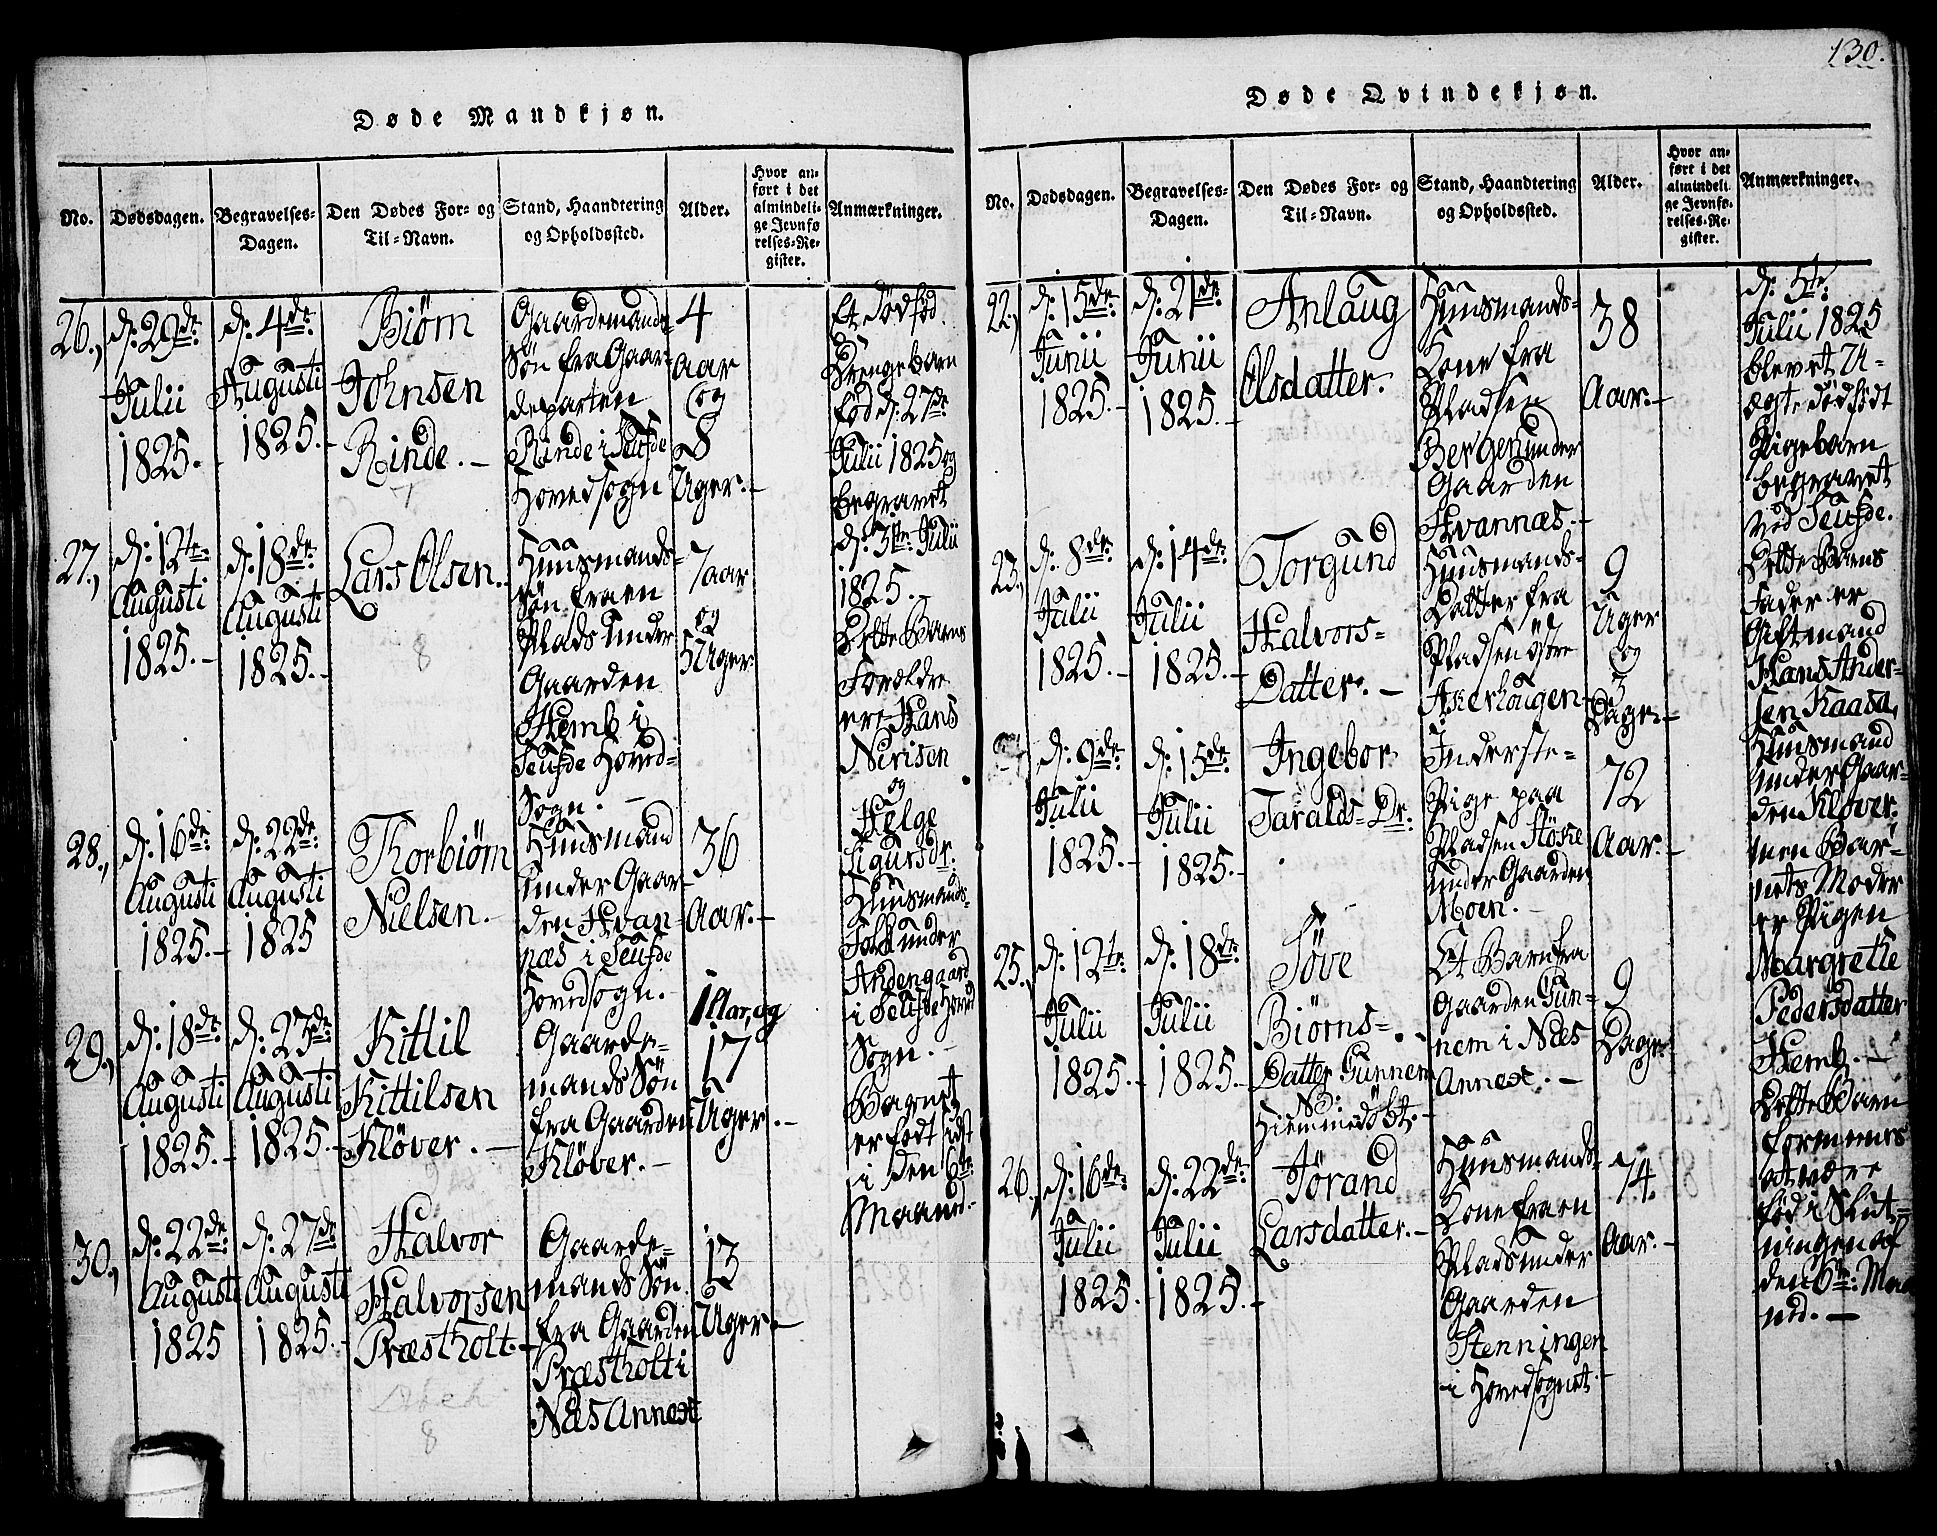 130.
Døde Mandkjøn.
No.
Dødsdagen.
Begravelses-
Dagen.
Den Dødes For- og
Til-Navn.
Stand, Haandtering
og Opholdssted.
Alder.
Hvor an-
ført i det
almindeli-
ge Jevnfø
relses-Re-
gister.
Anmærkninger.
26.,
d: 29de
Julii
1825.
d: 4de:
Augusti
1825.
Biørn
Johnsen
Rinde.
Gaardemands
Søn fra Gaar-
departen
Rinde i Seufde
Hovedsogn
4
Aar
og
8
Uger.
Et dødfød
Drengebarn
fød d: 27de
Julii 1825 og
begravet
d: 31te Julii
1825.
Dette Barns
Forældre
ere Hans
Nirisen
og
Helge
Sigursdr:
Huusmands-
Folk under
Andengaard
i Seufde Hoved
Sogn.
27.,
d: 12te
Augusti
1825.
d: 18de:
Augusti
1825.
Lars Olsen.
8
Huusmands-
Søn fra en
Plads under
Gaarden
Hemb i
Seufde Hoved-
Sogn.
7 aar
og
Uger
28.,
d: 16de:
Augusti
1825.
d: 22de:
Augusti
1825
Thorbiørn
Nielsen.
Huusmand
under Gaar-
den Hvan-
næs i Seufde
Hovedsogn.
36
Aar.
29.,
d: 18de
Augusti
1825.
d: 23de
Augusti
1825.
Kittil
Kittilsen
Kløver.
Gaarde-
mands Søn
fra Gaarden
Kløver.
1 Aar, og
17
Uger.
Barnet
er født sidst
i den 6te
Maaned.
30.,
d: 22de
Augusti
1825
d: 27de
Augusti
1825.
Halvor
Halvorsen
Præstholt.
8
Gaarde-
mands Søn
fra Gaarden
Præstholt i
Næs Annext
13
Uger
Døde Qvindekjøn.
No.
Dødsdagen.
Begravelses-
Dagen.
Den Dødes For- og
Til-Navn.
Stand, Haandtering
og Opholdssted.
Alder.
Hvor an-
ført i det
almindeli-
ge Jevnfø-
relses-Re-
gister.
Anmærkninger.
22.,
d: 15de:
Junii
1825.
d: 21de:
Junii
1825.
Anlaug
Olsdatter.
Huusmands-
Kone fra
Pladsen
Bergen under
Gaarden
Hvannæs.
38
Aar.
d: 5te
Julii 1825
blevet U-
ægte dødfødt
Pigebarn
begravet
ved Seufde.
Dette Barns
Fader er
Giftmand
Hans Ander-
sen Kaasa,
Huusmand
under Gaar-
den Kløver.
men Bar-
nets Moder
er Pigen
Margrethe
Pedersdatter
Hemb.
Dette Barn
formenes
at være
fød i Slut-
ningen af
den 6te: Maa
ned.
23.,
d: 8de:
Julii
1825.
d: 14de:
Julii
1825.
Torgund
Halvors-
Datter.
Huusmands-
Datter fra
Pladsen østre
Aserhougen
9
Uger
og
5
Dage.
d: 9de
Julii
1825.
d: 15de:
Julii
1825.
Ingebor
Taralds-Dr:
Inderste-
Pige paa
Pladsen
under Gaarden
Moen.
72
Aar.
25.,
d: 12te:
Julii
1825.
d: 18de:
Julii
1825.
Tøve
Biørns-
Datter Gunnem
NB:
Hiemmedøbt.
Et Barn fra
Gaarden Gun-
nem i Næs
Annext.
9
Dage
26.,
d: 16de:
Julii
1825.
d: 22de:
Julii
1825.
Jørand
Larsdatter.
Huusmands-
Kone fra en
Plads under
Gaarden
Stenningen
i Hovedsognet.
74.
Aar.